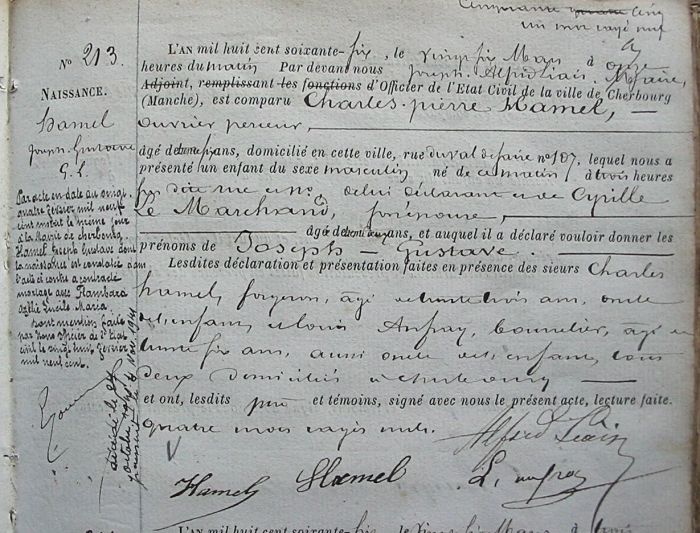 cinquante cinq
un mot rayé nul
No 213.
NAISSANCE.
Hamel
Joseph Gustave
G. L.
L'AN mil huit cent soixante-six, le vingt six Mars à onze
heures du matin Par devant nous Joseph Alfred Liais, Maire,
Adjoint, remplissant les fonctions d'Officier de l'Etat Civil de la ville de Cherbourg
(Manche), est comparu Charles-pierre Hamel,
ouvrier perceur,
âgé de trente ans, domicilié en cette ville, rue du val de faire no 107, lequel nous a
présenté un enfant du sexe masculin né de ce matin, à trois heures
de lui déclarant et de Cyrille
Le Marchand, son épouse,
âgée de ans, et auquel il a déclaré vouloir donner les
prénoms de Joseph-Gustave.
Lesdites déclaration et présentation faites en présence des sieurs Charles
hamel, forgeron, âgé de trente trois ans, oncle
de l'enfant, et Louis Anfray, bourrelier, âgé de
trente six ans, aussi oncle de l'enfant, tous
deux domiciliés à cherbourg
et ont, lesdits père et témoins, signé avec nous le présent acte, lecture faite.
quatre mots rayés nuls.
Alfred Liais
Hamel Hamel L. anfray
Par acte en date du vingt
quatre février mil neuf
cent inscrit le même jour
à la Mairie de cherbourg,
Hamel Joseph Gustave dont
la naissance est constatée dans
l'acte ci contre a contracté
mariage avec Flambard
Lucile Maria.
Dont mention faite
par Nous officier de l'Etat
civil le vingt huit février
mil neuf cent.
décédé le
octobre
nov. 1941
L'AN mil huit cent soixante-six, le vingt six Mars à trois